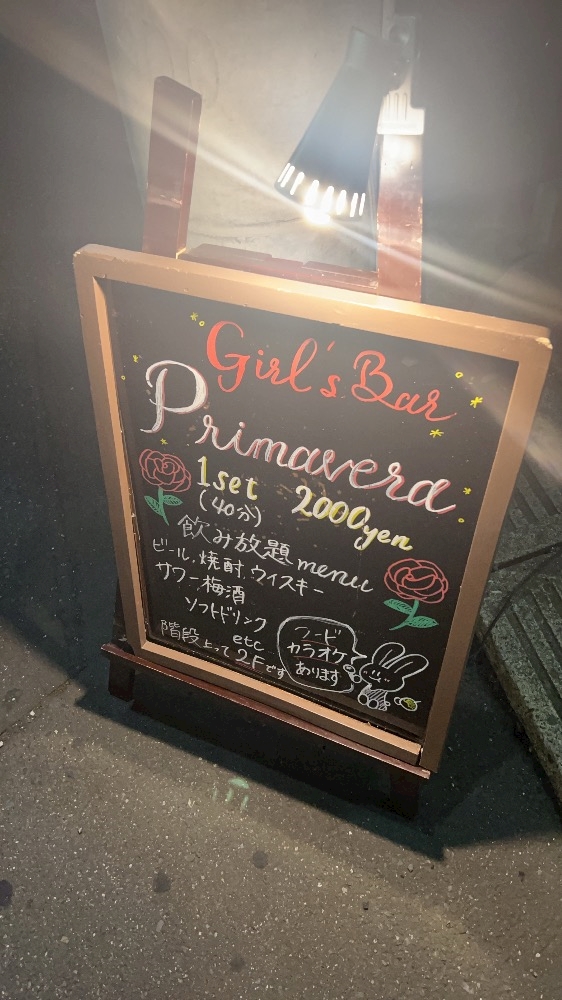 Girl's Bar
Primavera
1set 2000yen
(40分)
飲み放題menu
ビール.焼酎.ウイスキー
サワー.梅酒
ソフトドリンク
etc
階段上って2Fです
フード
カラオケ
あります